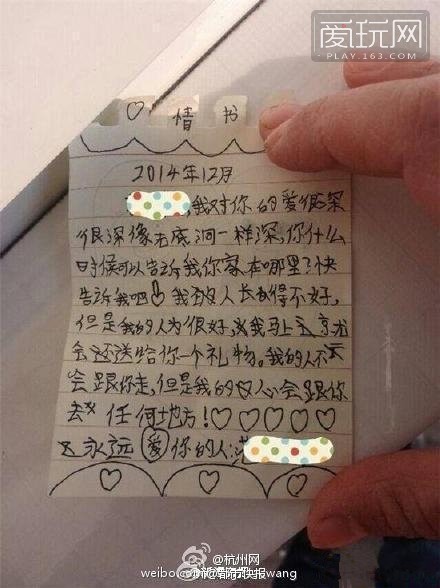 爱玩网
PLAY.163.com
♡ 情 书
2014年12月
,我对你的爱很深
很深像无底洞一样深,你什么
时候可以告诉我你家在哪里?快
告诉我吧!我的人长得不好,
但是我的人为很好,我马上
会还送给你一个礼物。我的人不
会跟你走,但是我的心会跟你
去 任何地方!♡♡♡♡♡
永远爱你的人:
@杭州网
weibo
wang